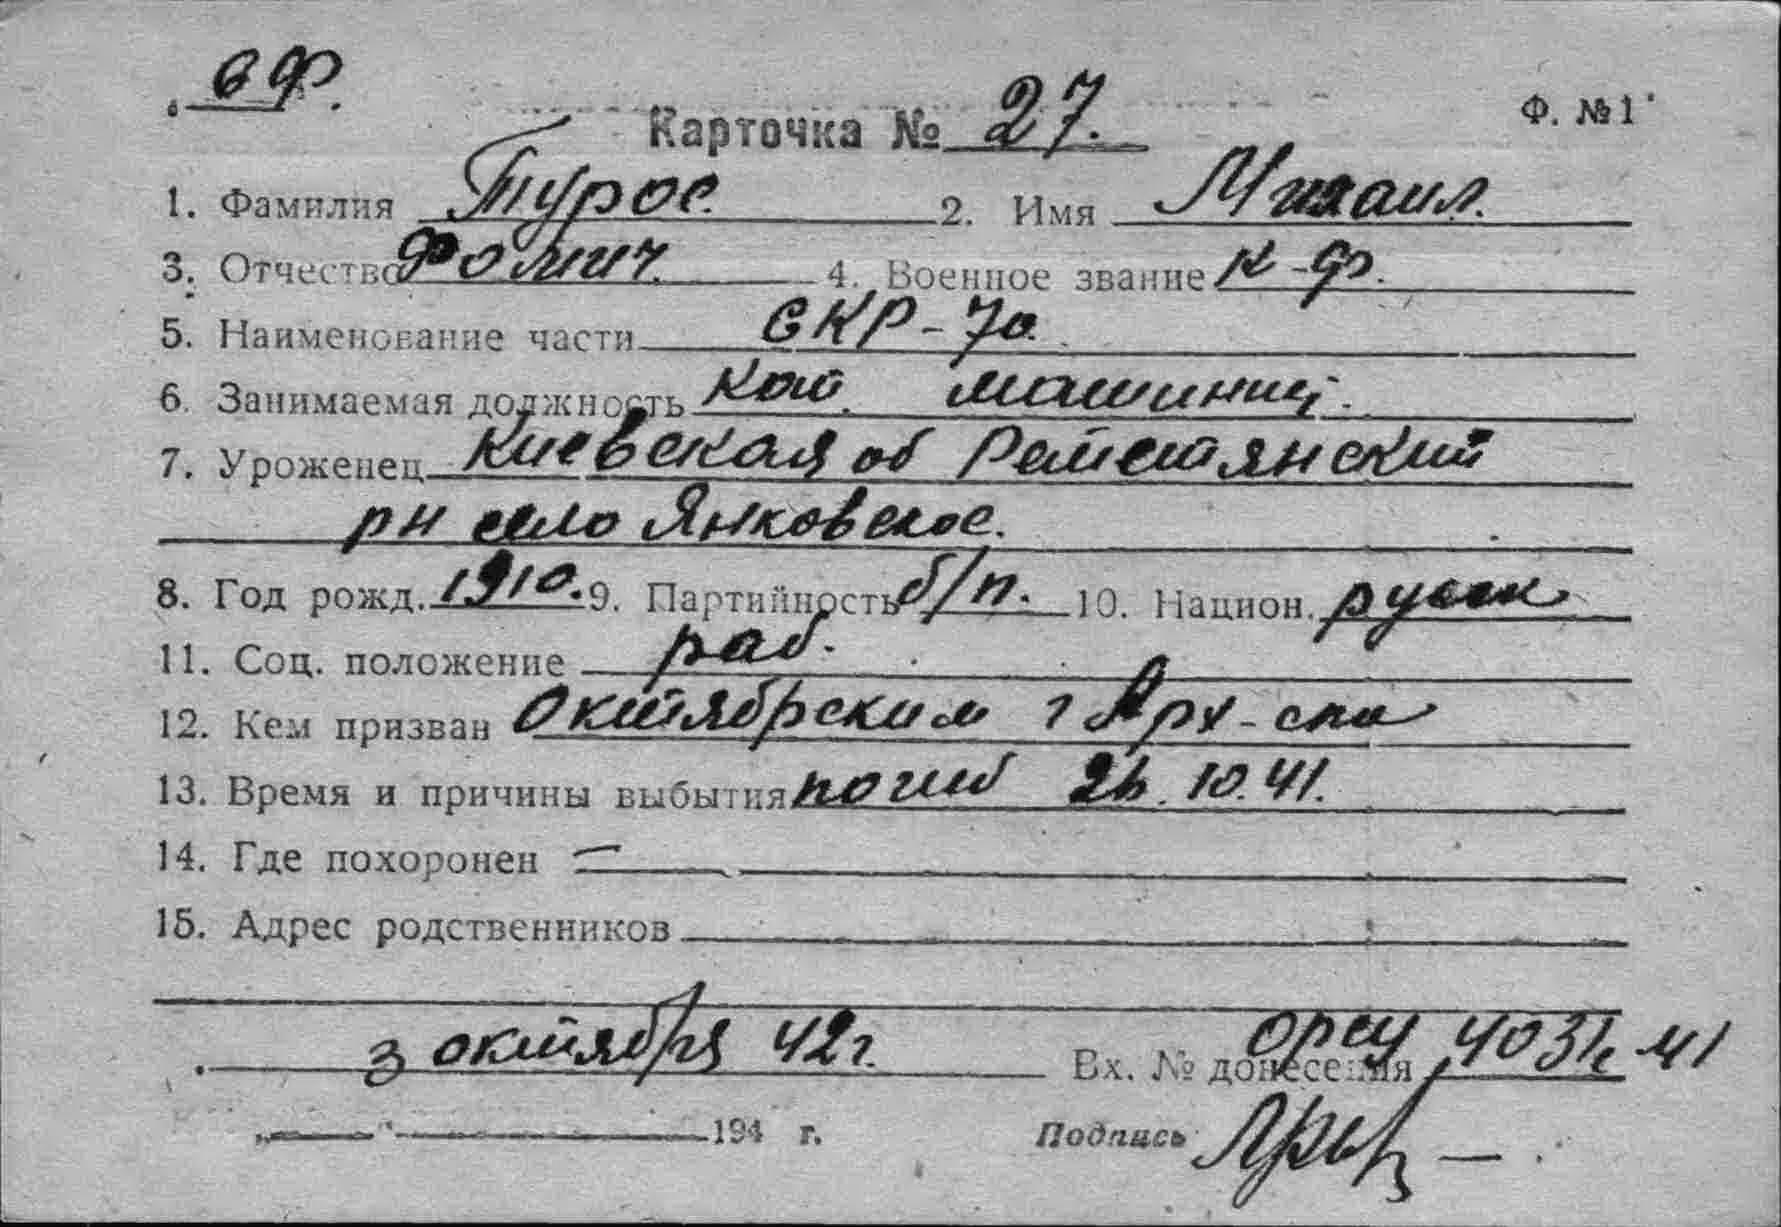 СФ.
Карточка № 27.
Ф. №1
1. Фамилия Турос. 2. Имя Михаил.
3. Отчество Фомич. 4. Военное звание к-ф.
5. Наименование части СКР-70.
6. Занимаемая должность Ком. машинич.
7. Уроженец Киевская об
рн село Янковское.
8. Год рожд. 1910. 9. Партийность б/п. 10. Национ. русск
11. Соц. положение раб.
12. Кем призван Октябрским г Арх-ска
13. Время и причины выбытия погиб 26.10.41.
14. Где похоронен —
15. Адрес родственников
3 октября 42г. Вх. № донесения орсу
194 г. Подпись